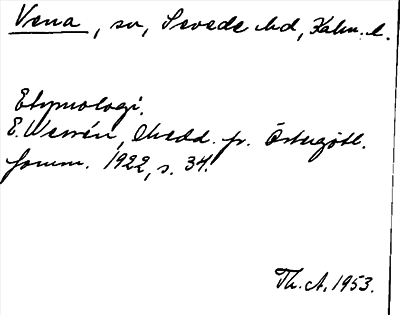 Vena, sn, Sevede hd, Kalm. l.
Etymologi.
E. Wessén, Medd. fr. Östergötl.
fornm. 1922, s. 34.
Th. A. 1953.